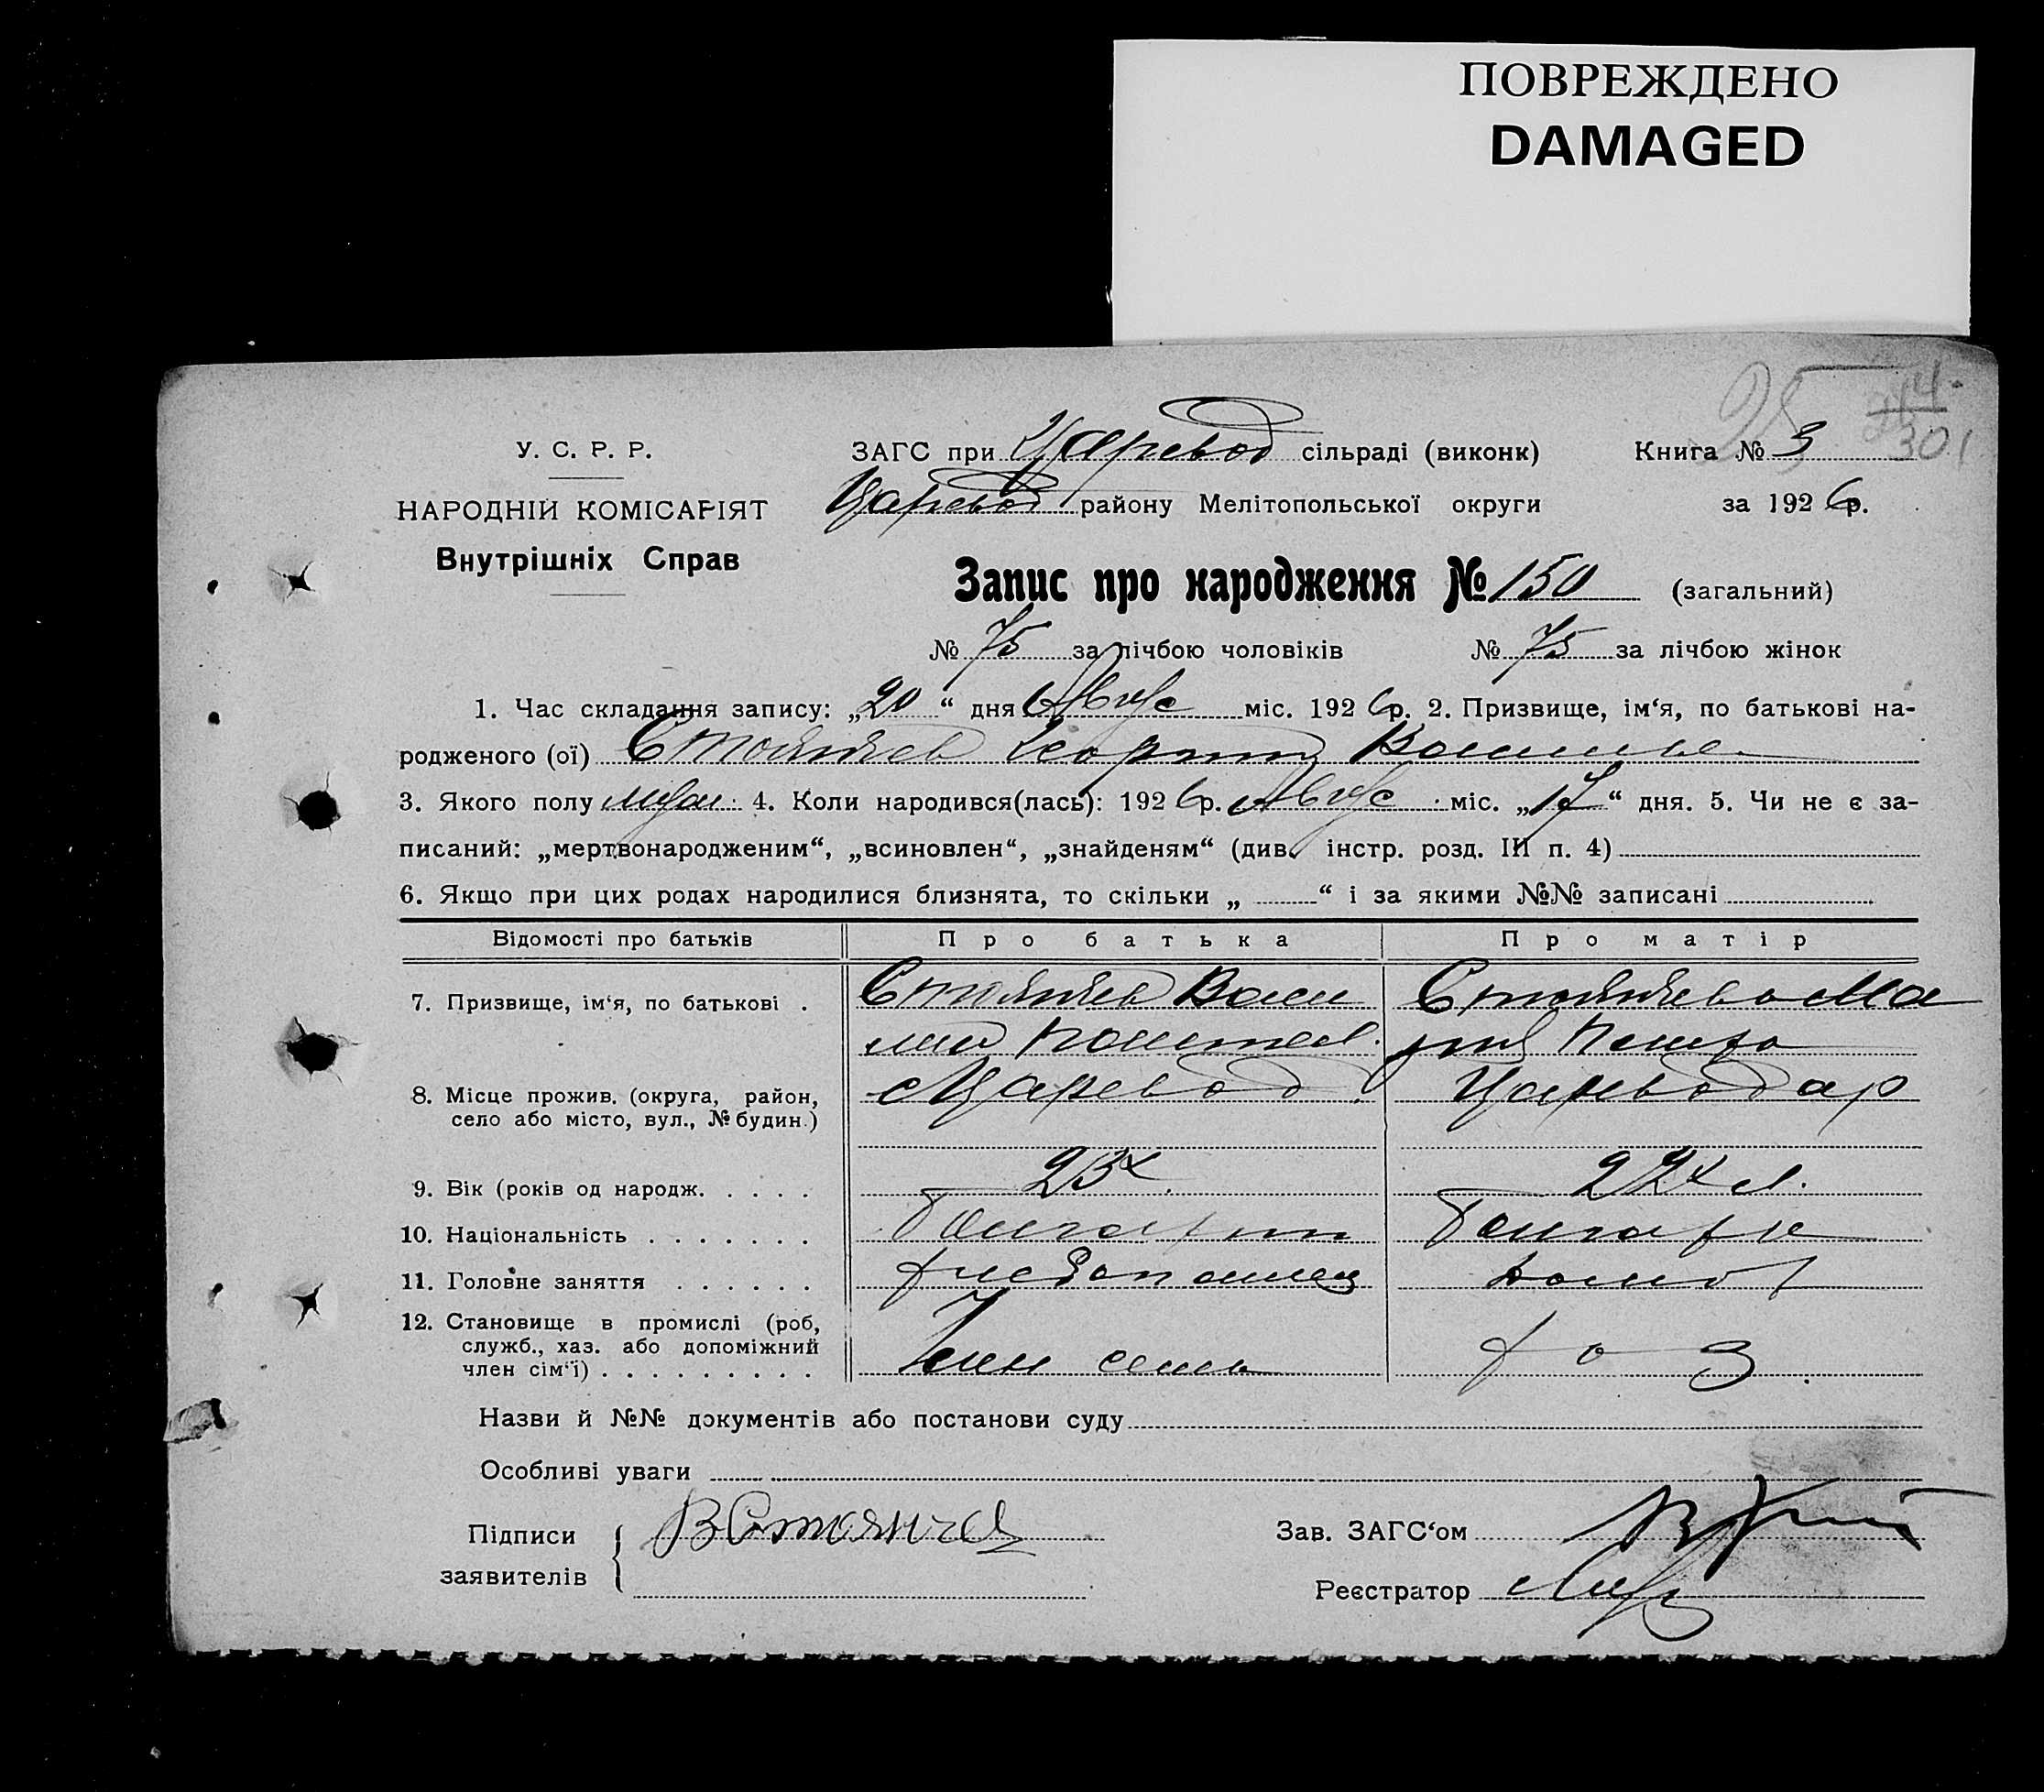 ПОВРЕЖДЕНО
DAMAGED
25 44
301
У. С. Р. Р.
НАРОДНІЙ КОМІСАРІЯТ
Внутрішніх Справ
ЗАГС при Царевод сільраді (виконк) Книга № 3
Царевод району Мелітопольської округи за 1926 р.
Запис про народження № 150 (загальний)
№ 75 за лічбою чоловіків № 75 за лічбою жінок
1. Час складання запису: „20“ дня Авгус міс. 1926 р. 2. Призвище, ім‘я, по батькові на-
родженого (ої)
3. Якого полу муж. 4. Коли народився(лась): 1926 р. Авгус міс. „17“ дня. 5. Чи не є за-
писаний: „мертвонародженим“, „всиновлен“, „знайденям“ (див. інстр. розд. III п. 4)
6. Якщо при цих родах народилися близнята, то скільки „ “ і за якими №№ записані
Відомості про батьків Про батька Про матір
7. Призвище, ім‘я, по батькові . Васи Ма
лий рия
8. Місце прожив. (округа, район, Царевод Царевода р
село або місто, вул., № будин.)
9. Вік (років од народж. . . . . 23х 22х л.
10. Національність . . . . . . . болгарин болгарк
11. Головне заняття . . . . . . хлебопашец домохоз
12. Становище в промислі (роб,
служб., хаз. або допоміжний
член сім‘ї) . . . . . . . . . член семьи
Назви й №№ документів або постанови суду
Особливі уваги
Підписи Зав. ЗАГС‘ом
заявителів Реєстратор